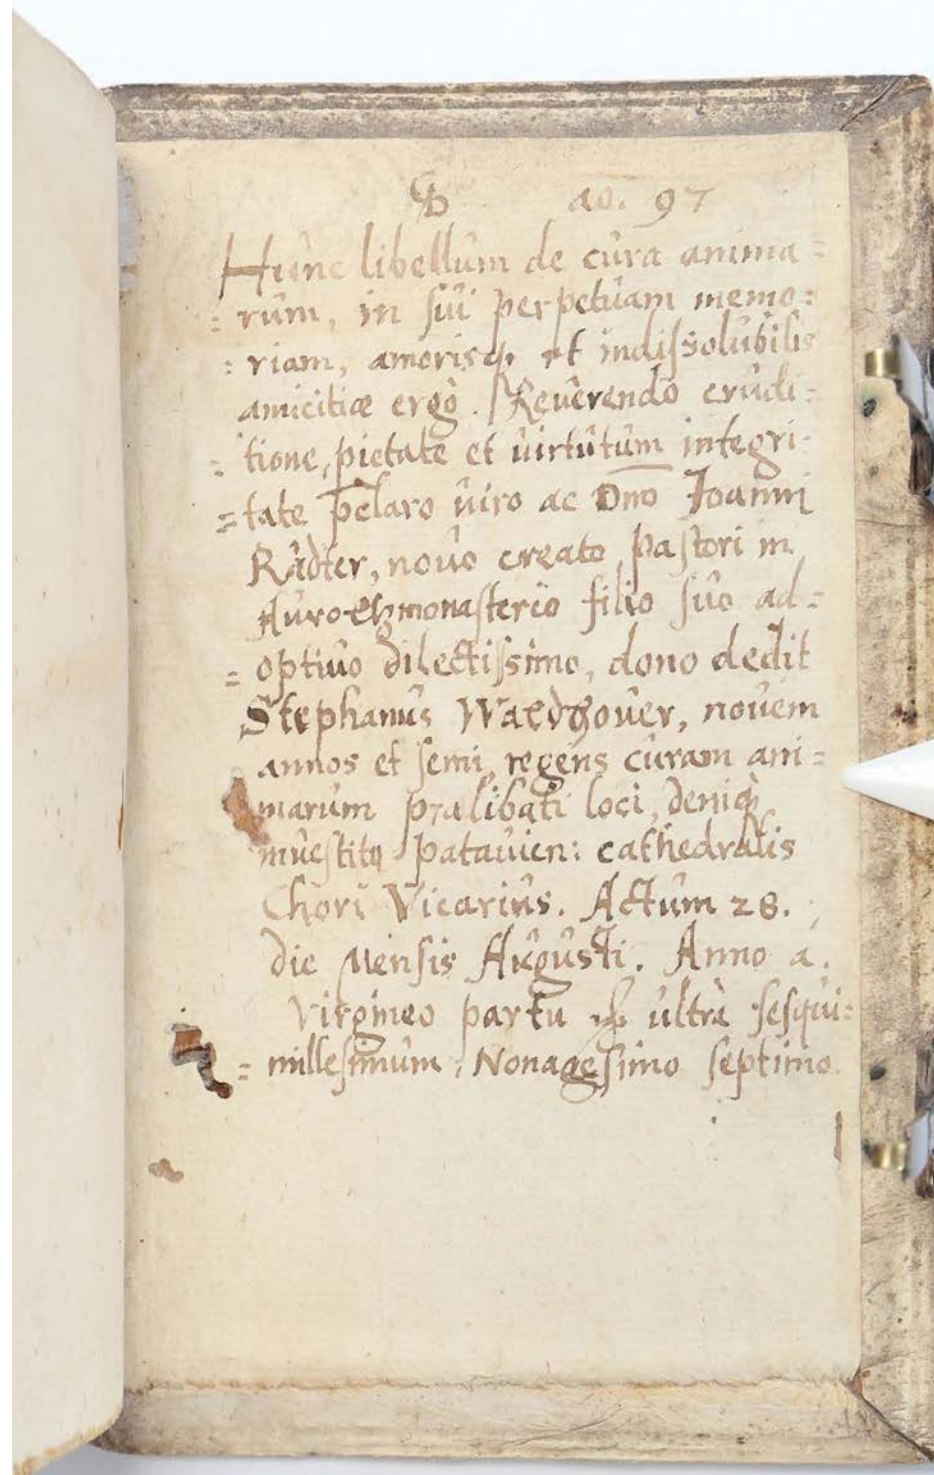 ao. 97
Hunc libellum de cura anima=
=rum, in sui perpetuam memo=
=riam, amorisq; et indissolubilis
amicitiæ ergò. Reuerendo erudi=
=tione, pietate et uirtutum integri=
=tate p̄claro uiro ac Dn̄o Joanni
Rudter, nouo creato pastori in
filio suo ad=
=optiuo dilectissimo, dono dedit
Stephanus nouem
annos et semi, regens curam ani=
marum prælibati loci, deniq;
patauien: cathedralis
Chori Vicarius. Actum 28.
die Mensis Augusti. Anno à
Virgineo partu ultrà sesqui=
=millesimum, Nonagesimo septimo.